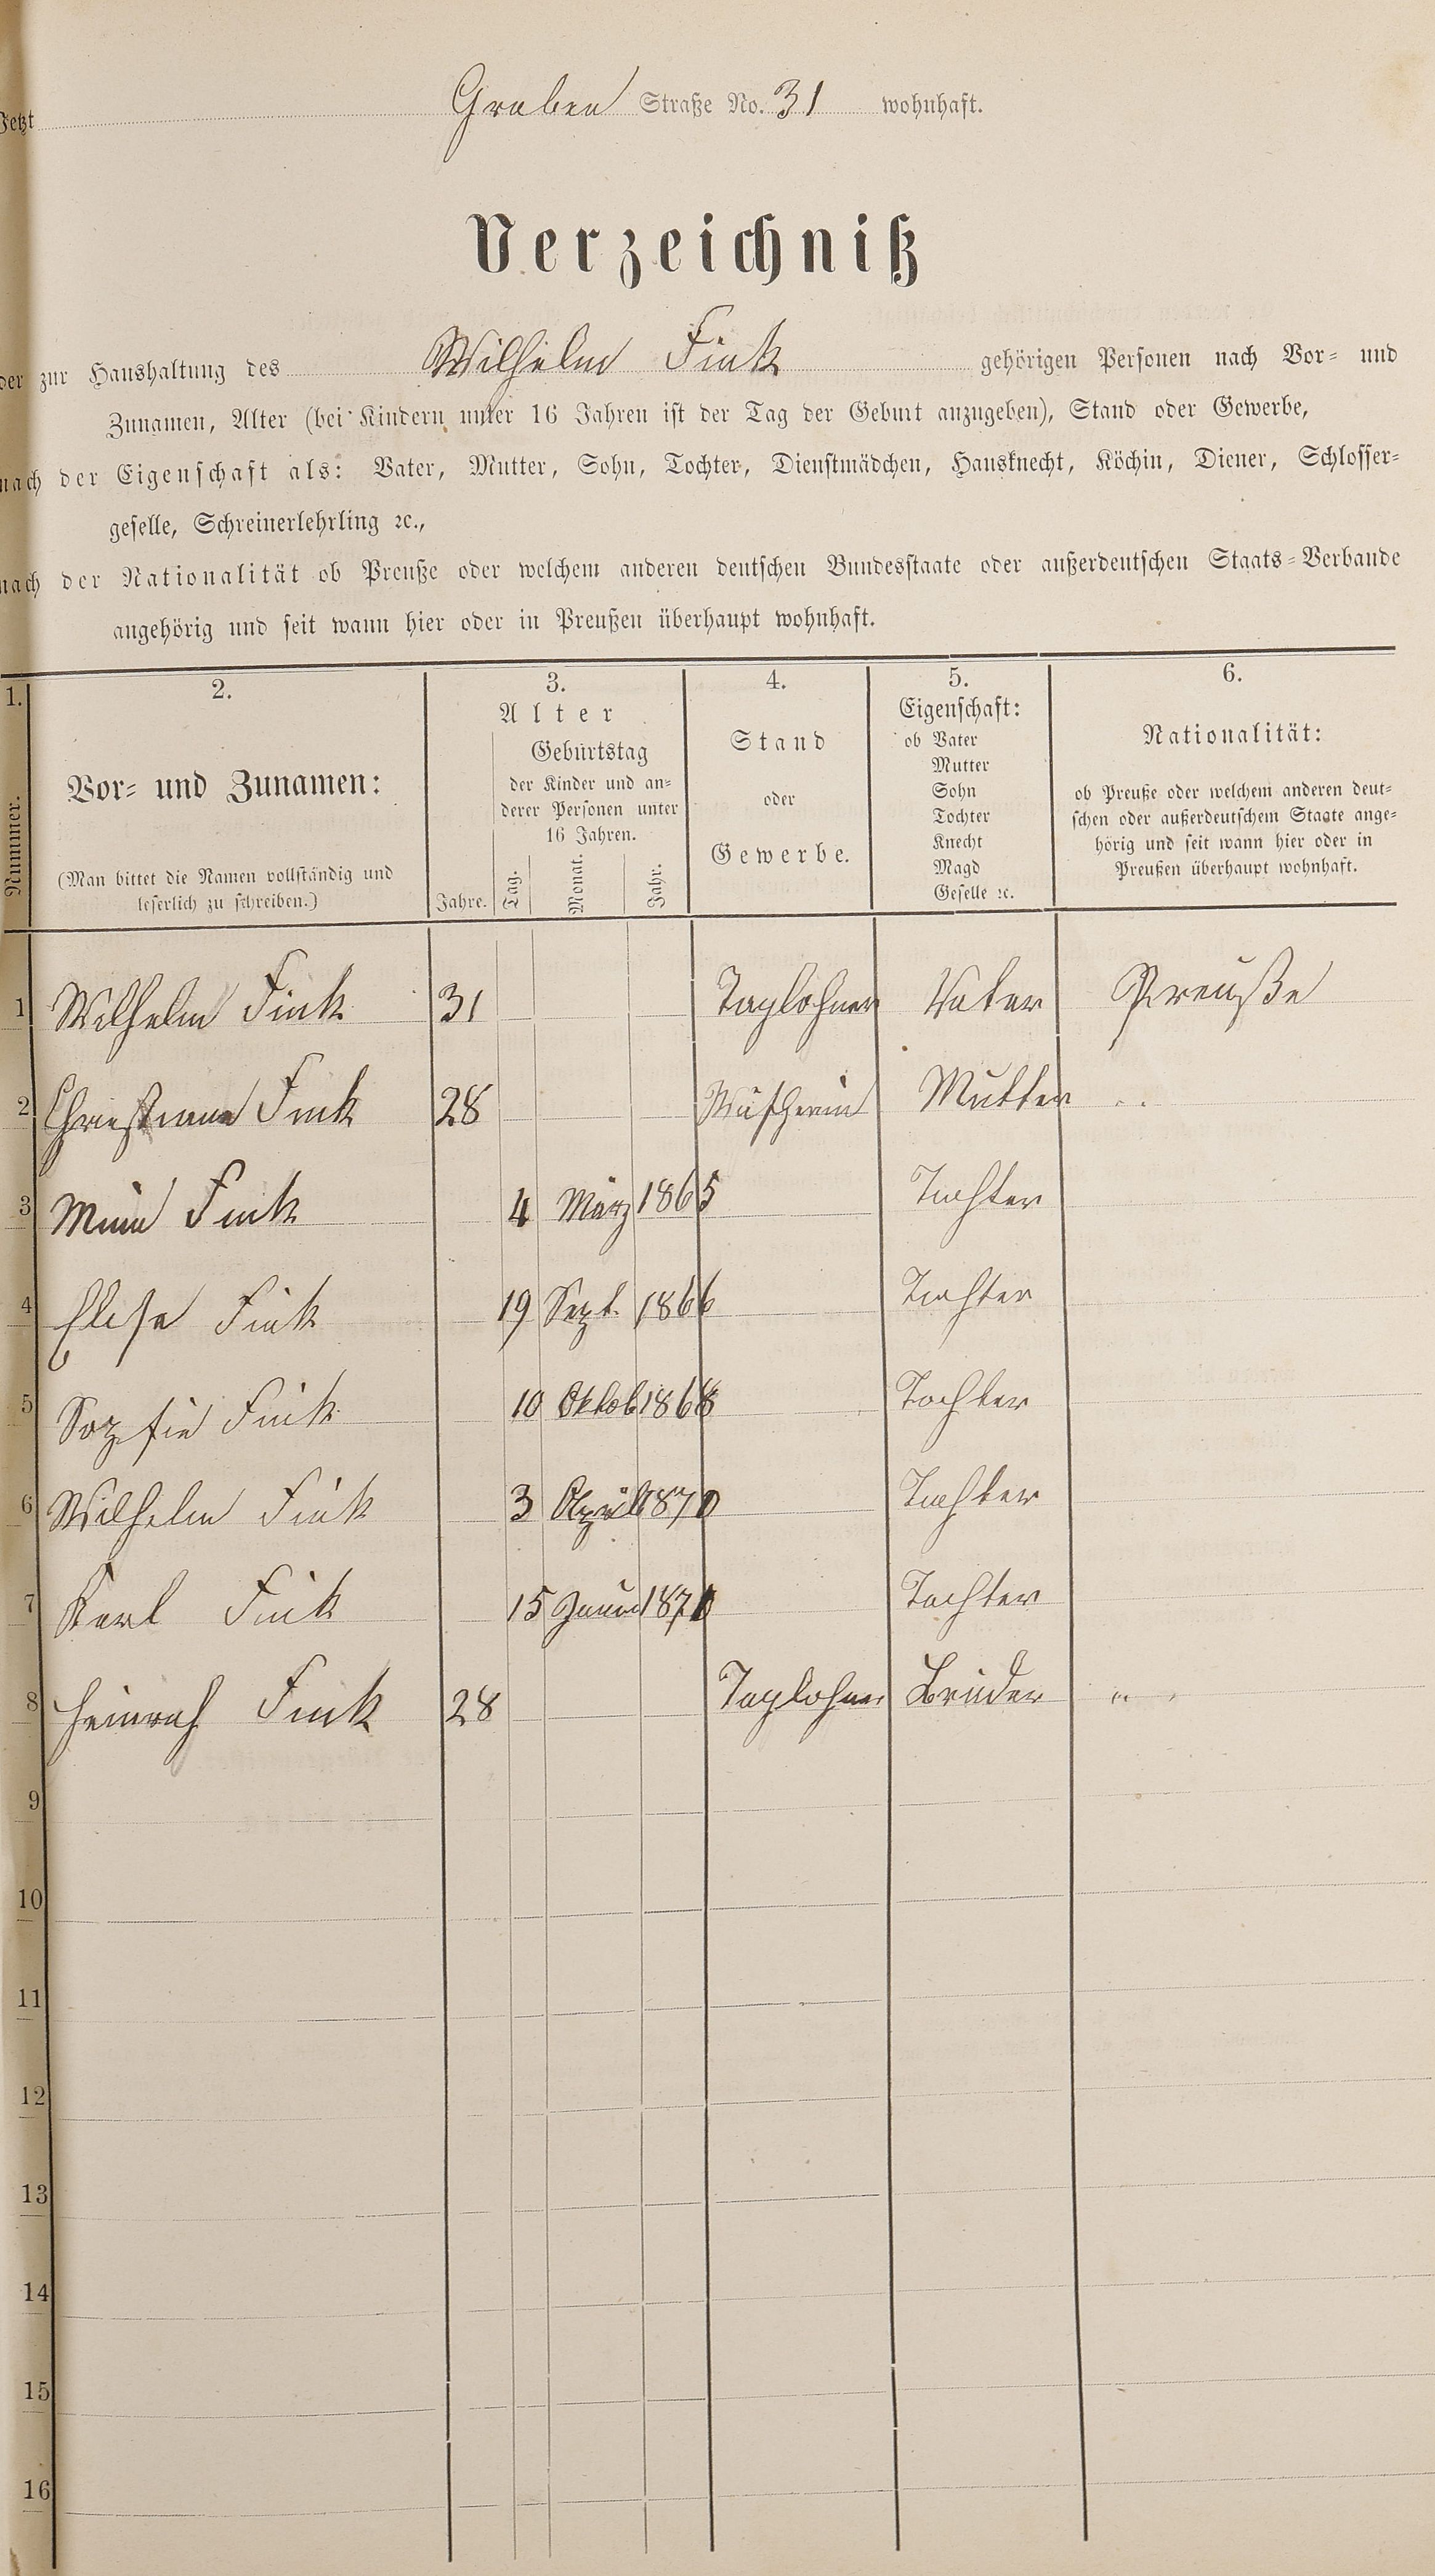 Jetzt Graben Straße No. 31 wohnhaft.
Verzeichniß
der zur Haushaltung des Wilhelm Fink gehörigen Personen nach Vor- und
Zunamen, Alter (bei Kindern unter 16 Jahren ist der Tag der Geburt anzugeben), Stand oder Gewerbe,
nach der Eigenschaft als: Vater, Mutter, Sohn, Tochter, Dienstmädchen, Hausknecht, Köchin, Diener, Schlosser-
geselle, Schreinerlehrling ꝛc.,
nach der Nationalität ob Preuße oder welchem anderen deutschen Bundesstaate oder außerdeutschen Staats-Verbande
angehörig und seit wann hier oder in Preußen überhaupt wohnhaft.
1. 2. 3. 4. 5. 6.
Nummer.
Vor- und Zunamen:
(Man bittet die Namen vollständig und
leserlich zu schreiben.)
Alter
Jahre.
Geburtstag
der Kinder und an-
derer Personen unter
16 Jahren.
Tag. Monat. Jahr.
Stand
oder
Gewerbe.
Eigenschaft:
ob Vater
Mutter
Sohn
Tochter
Knecht
Magd
Geselle ꝛc.
Nationalität:
ob Preuße oder welchem anderen deut-
schen oder außerdeutschem Staate ange-
hörig und seit wann hier oder in
Preußen überhaupt wohnhaft.
1 Wilhelm Fink 31 Taglohner Vater Preuße
2 Christiane Fink 28 Wäscherin Mutter "
3 Fink 4 März 1865 Tochter
4 Elise Fink 19 Sept. 1866 Tochter
5 Sopfie Fink 10 Oktob 1868 Tochter
6 Wilhelm Fink 3 April 1870 Tochter
7 Karl Fink 15 Tochter
8 Heinrich Fink 28 Taglohner Bruder "
9
10
11
12
13
14
15
16